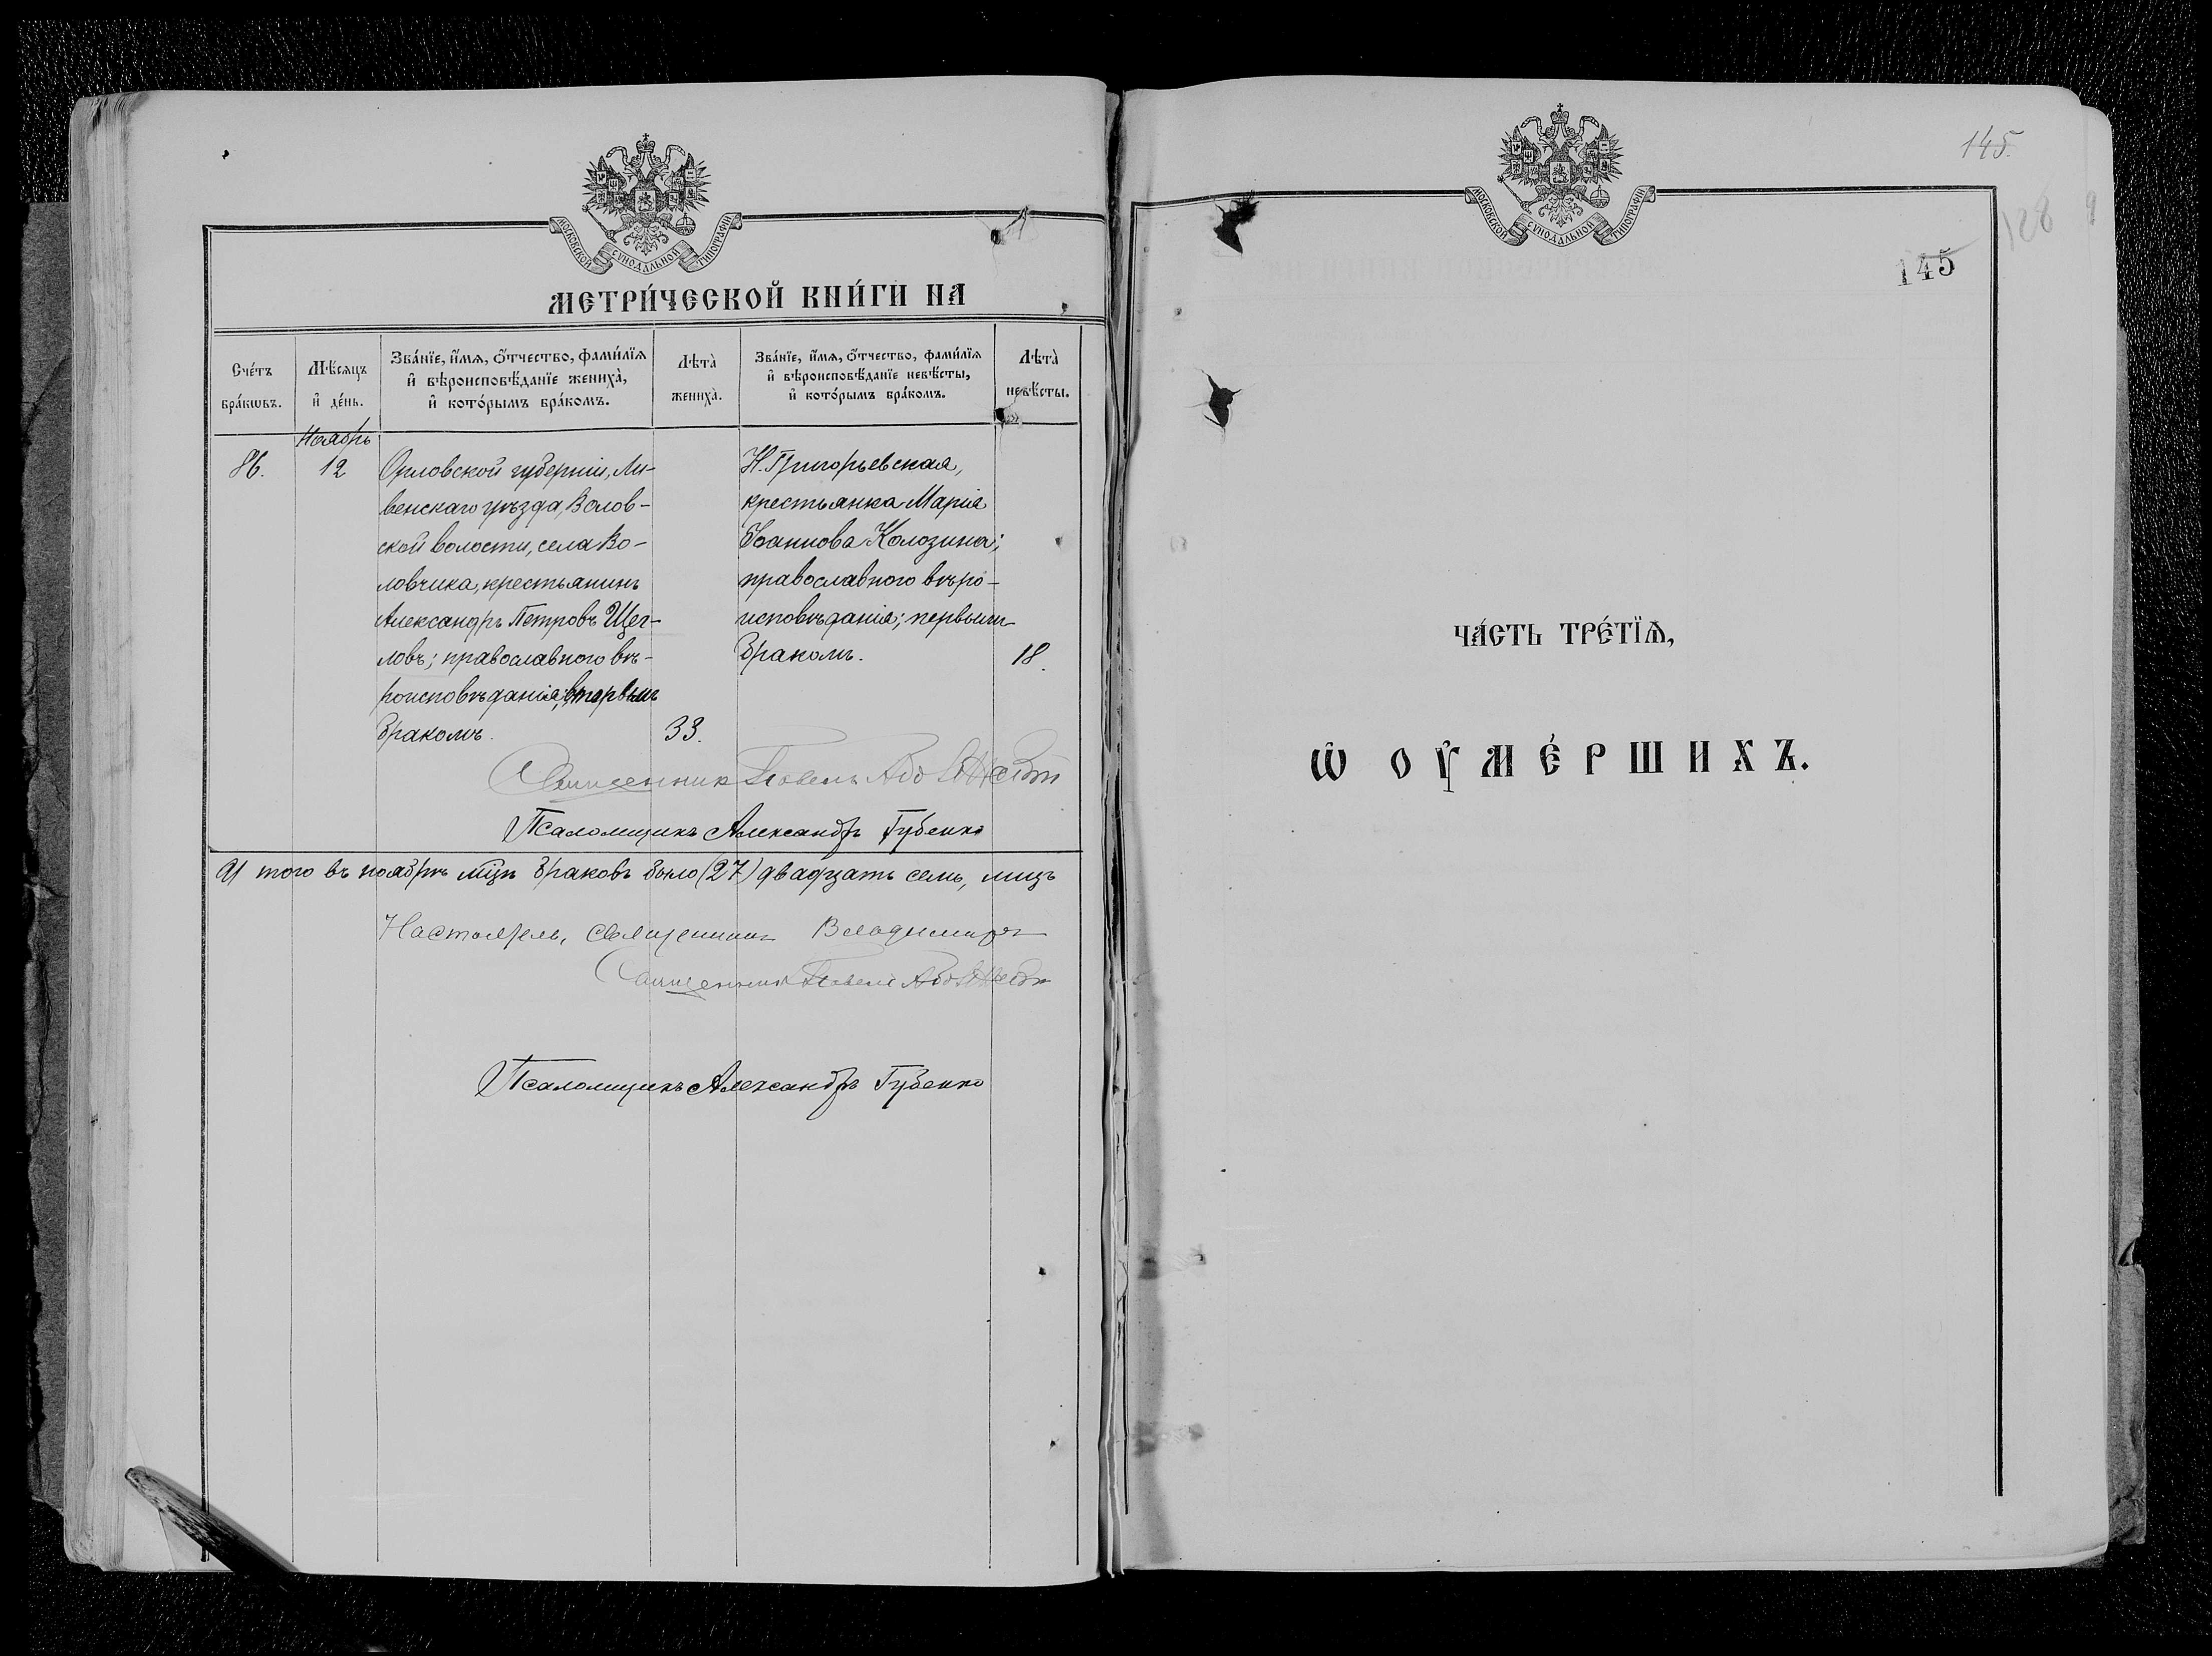 МОСКОВСКОЙ СѴНОДАЛЬНОЙ ТИПОГРАФІИ
МЕТРИ́ЧЕСКОЙ КНИ́ГИ НА
Сче́тъ бра́кѡвъ.
Мѣ́сѧцъ и҆ де́нь.
Зва́нїе, и҆́мѧ, ѻ҆́тчество, фами́лїѧ
и҆ вѣроисповѣ́данїе жениха̀,
и҆ кото́рымъ бра́комъ.
Лѣта̀ жениха̀.
Зва́нїе, и҆́мѧ, ѻ҆́тчество, фами́лїѧ
и҆ вѣроисповѣ́данїе невѣ́сты,
и҆ кото́рымъ бра́комъ.
Лѣта̀ невѣ́сты.
Ноябрь
86.
12
Орловской губерніи, Ли-
венскаго уѣзда, Волов-
ской волости, села Во-
ловчика, крестьянинъ
Александръ Петровъ Щег-
ловъ; православного вѣ-
роисповѣданія; вторымъ
бракомъ.
33.
Н. Григорьевская,
крестьянка Марія
Іоаннова Колозина;
православного вѣро-
исповѣданія; первымъ
бракомъ.
18.
Священник Павелъ
Псаломщикъ Александръ Губенко
И того въ ноябрѣ мцѣ браковъ было (27) двадцать семь, лицъ
Настоятель, священникъ Владимиръ
Священник Павелъ
Псаломщикъ Александръ Губенко
МОСКОВСКОЙ СѴНОДАЛЬНОЙ ТИПОГРАФІИ
145.
128
145
ЧА́СТЬ ТРЕ́ТЇѦ,
Ѡ҆ ОУ҆МЕ́РШИХЪ.